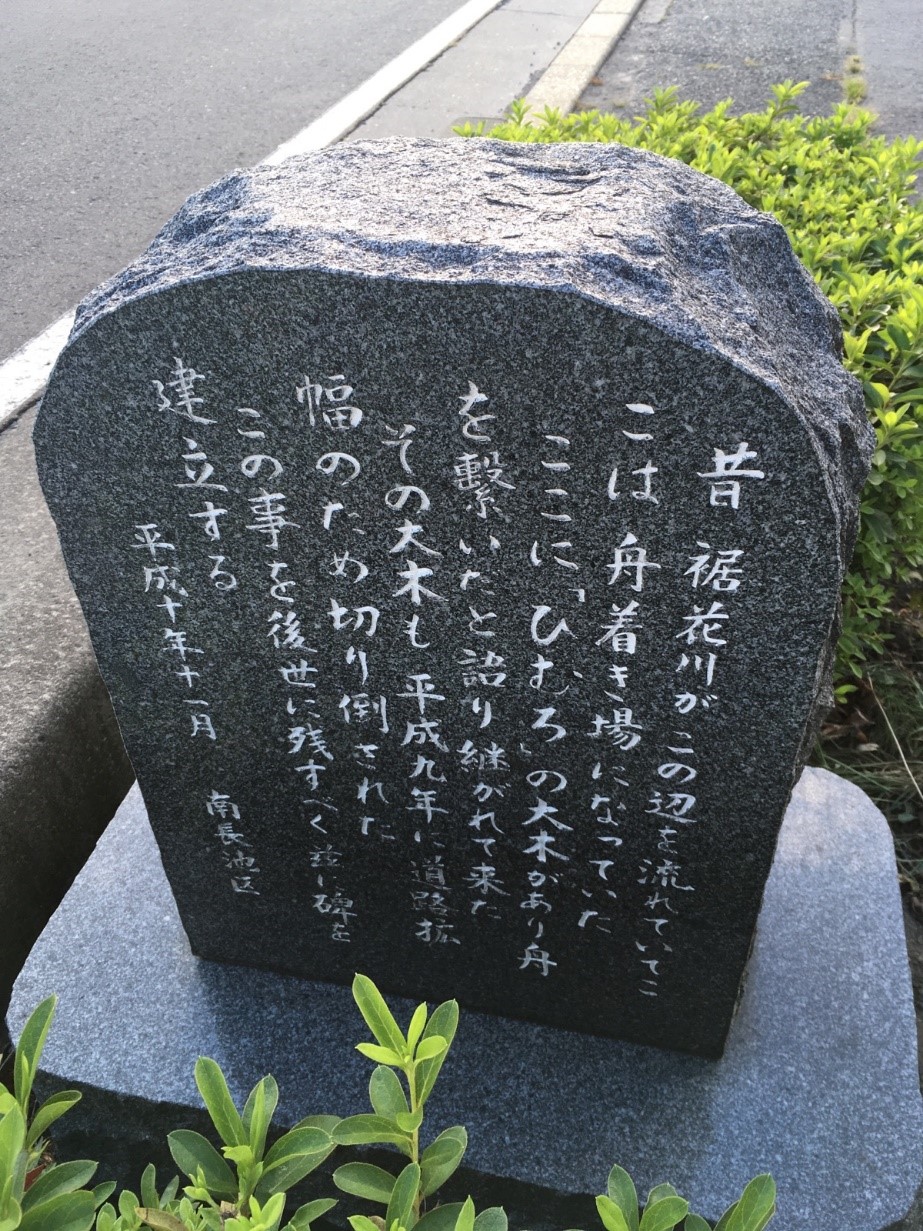 昔 裾花川がこの辺を流れていてこ
こは舟着き場になっていた
ここに「ひむろ」の大木があり舟
を繋いだと語り継がれて来た
その大木も平成九年に道路拡
幅のため切り倒された
この事を後世に残すべく茲に碑を
建立する
平成十年十一月
南長池区